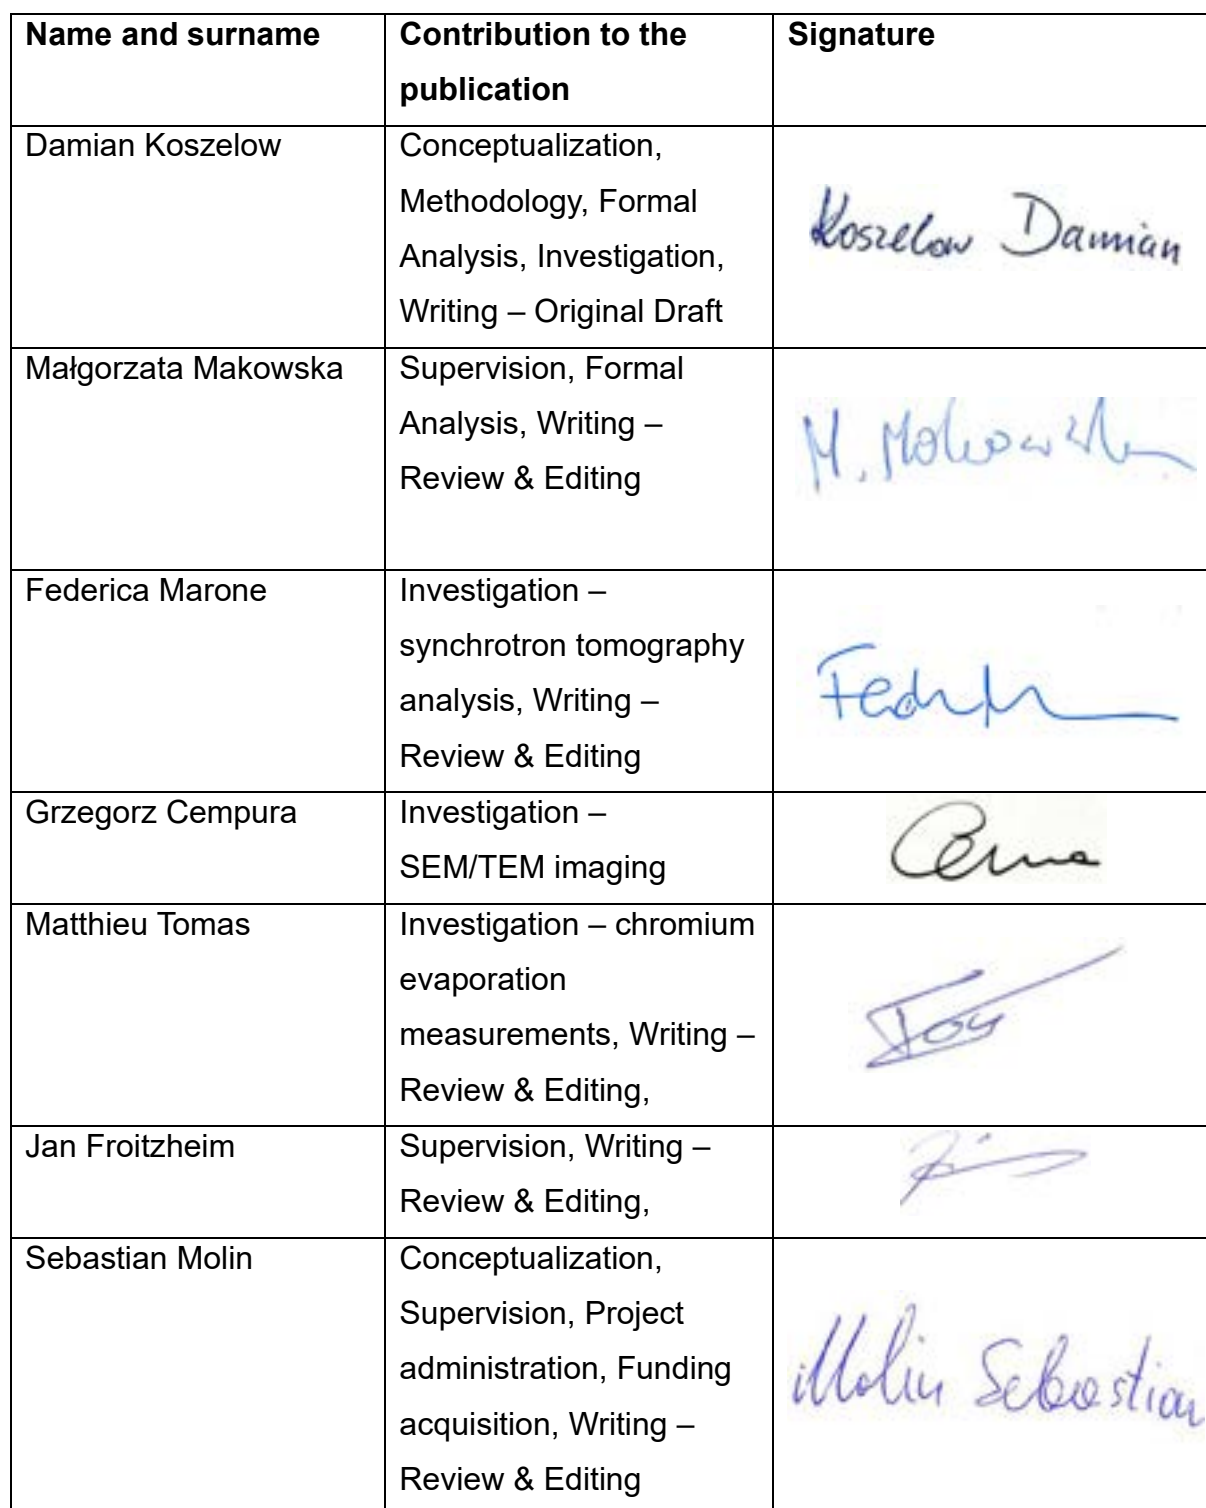 Name and surname
Contribution to the
publication
Signature
Damian Koszelow
Conceptualization,
Methodology, Formal
Analysis, Investigation,
Writing – Original Draft
Koszelow Damian
Małgorzata Makowska
Supervision, Formal
Analysis, Writing –
Review & Editing
M. Makowska
Federica Marone
Investigation –
synchrotron tomography
analysis, Writing –
Review & Editing
Grzegorz Cempura
Investigation –
SEM/TEM imaging
Matthieu Tomas
Investigation – chromium
evaporation
measurements, Writing –
Review & Editing,
Jan Froitzheim
Supervision, Writing –
Review & Editing,
Sebastian Molin
Conceptualization,
Supervision, Project
administration, Funding
acquisition, Writing –
Review & Editing
Molin Sebastian